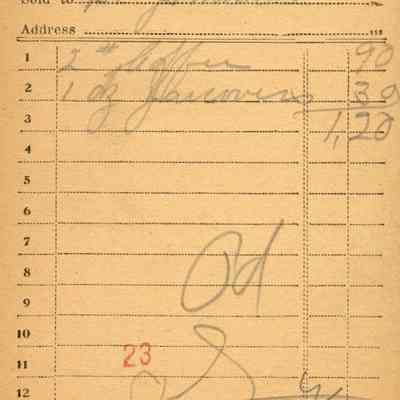 Sold to
Address
1 2 # Coffee 90
2 1 30
3 1,20
4
5
6
7
8
9
10
11 23
12
Pd